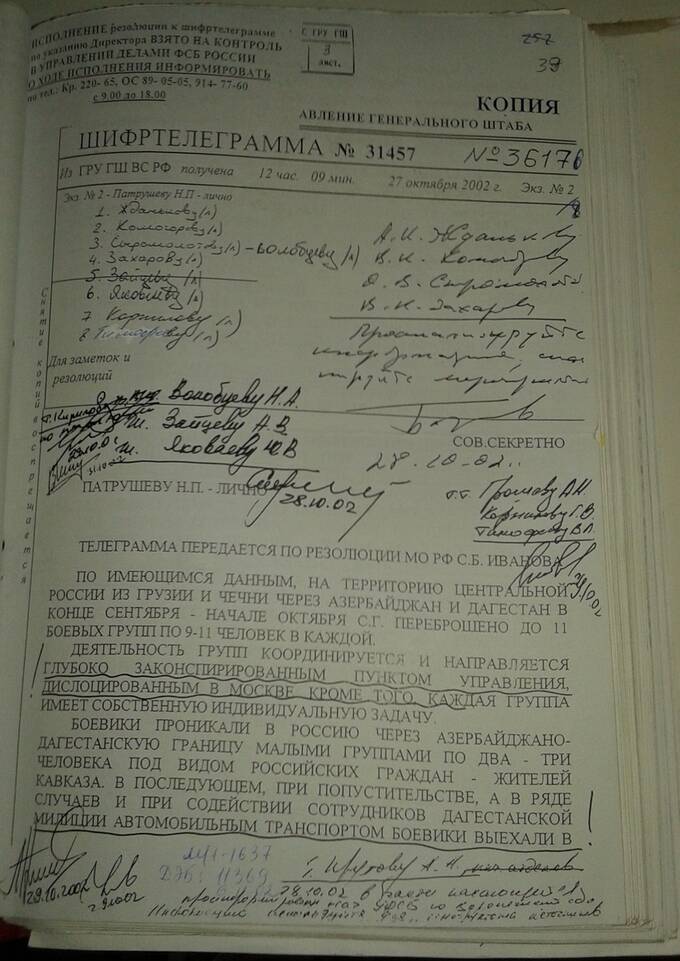 ИСПОЛНЕНИЕ резолюции к шифртелеграмме
по указанию Директора ВЗЯТО НА КОНТРОЛЬ
В УПРАВЛЕНИИ ДЕЛАМИ ФСБ РОССИИ
О ХОДЕ ИСПОЛНЕНИЯ ИНФОРМИРОВАТЬ
по тел.: Кр. 220- 65, ОС 89- 05-05, 914- 77-60
с 9.00 до 18.00
С ГРУ ГШ
3
лист.
257
39
КОПИЯ
АВЛЕНИЕ ГЕНЕРАЛЬНОГО ШТАБА
ШИФРТЕЛЕГРАММА № 31457 № 36176
Из ГРУ ГШ ВС РФ получена 12 час. 09 мин. 27 октября 2002 г. Экз. № 2
Экз. № 2 - Патрушеву Н.П - лично
1. Жданькову (л)
2. Комогорову (л)
3. Сыромолотову (л) - Волобуеву (л)
4. Захарову (л)
5. Зайцеву (л)
6. Яковлеву (л)
7 Корнилову (л)
8 Тимофееву (л)
А. И. Жданькову
В. К. Комогорову
О. В. Сыромолотову
В. К. Захарову
Снятие копий воспрещается
Для заметок и
резолюций
Волобуеву Н.А.
Зайцеву А.В
Яковлеву Ю.В
29.10.02
31.10.02
СОВ.СЕКРЕТНО
28.10.02.
ПАТРУШЕВУ Н.П. - ЛИЧНО
28.10.02
т.т. Громову А.Н
Корнилову Г.В.
Тимофееву В.П.
ТЕЛЕГРАММА ПЕРЕДАЕТСЯ ПО РЕЗОЛЮЦИИ МО РФ С.Б. ИВАНОВА
ПО ИМЕЮЩИМСЯ ДАННЫМ, НА ТЕРРИТОРИЮ ЦЕНТРАЛЬНОЙ
РОССИИ ИЗ ГРУЗИИ И ЧЕЧНИ ЧЕРЕЗ АЗЕРБАЙДЖАН И ДАГЕСТАН В
КОНЦЕ СЕНТЯБРЯ - НАЧАЛЕ ОКТЯБРЯ С.Г. ПЕРЕБРОШЕНО ДО 11
БОЕВЫХ ГРУПП ПО 9-11 ЧЕЛОВЕК В КАЖДОЙ.
ДЕЯТЕЛЬНОСТЬ ГРУПП КООРДИНИРУЕТСЯ И НАПРАВЛЯЕТСЯ
ГЛУБОКО ЗАКОНСПИРИРОВАННЫМ ПУНКТОМ УПРАВЛЕНИЯ,
ДИСЛОЦИРОВАННЫМ В МОСКВЕ КРОМЕ ТОГО, КАЖДАЯ ГРУППА
ИМЕЕТ СОБСТВЕННУЮ ИНДИВИДУАЛЬНУЮ ЗАДАЧУ.
БОЕВИКИ ПРОНИКАЛИ В РОССИЮ ЧЕРЕЗ АЗЕРБАЙДЖАНО-
ДАГЕСТАНСКУЮ ГРАНИЦУ МАЛЫМИ ГРУППАМИ ПО ДВА - ТРИ
ЧЕЛОВЕКА ПОД ВИДОМ РОССИЙСКИХ ГРАЖДАН - ЖИТЕЛЕЙ
КАВКАЗА. В ПОСЛЕДУЮЩЕМ, ПРИ ПОПУСТИТЕЛЬСТВЕ, А В РЯДЕ
СЛУЧАЕВ И ПРИ СОДЕЙСТВИИ СОТРУДНИКОВ ДАГЕСТАНСКОЙ
МИЛИЦИИ АВТОМОБИЛЬНЫМ ТРАНСПОРТОМ БОЕВИКИ ВЫЕХАЛИ В
29.10.2002
28.10.02